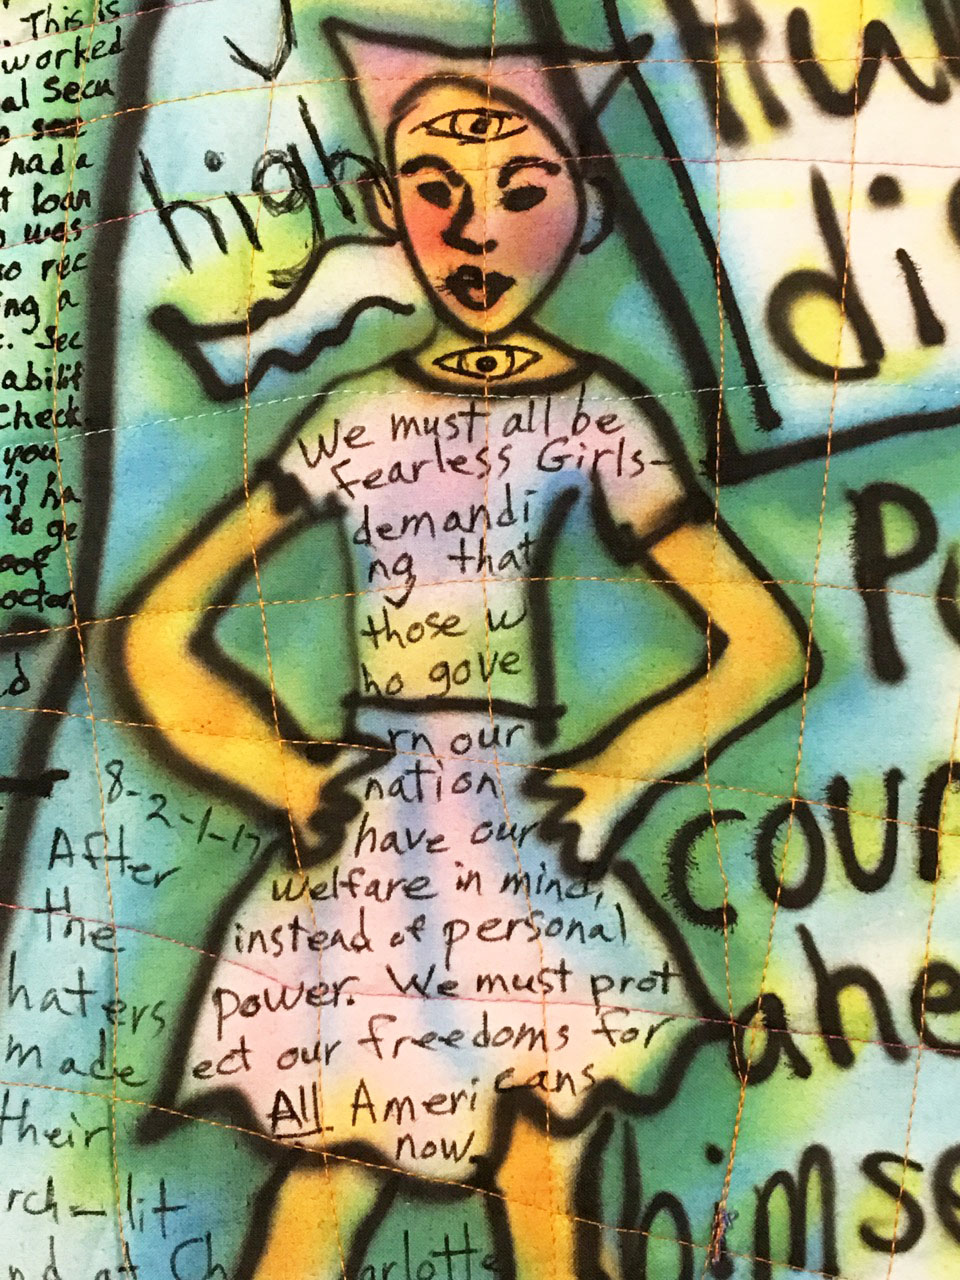 . This is
worked
al Secu
had a
t loan
was
so rec
ing a
. Sec
abilit
Check.
you
n't ha
to ge
oof
octor
d
high
Hu
di
We must all be
Fearless Girls-
demandi
ng that
those w
ho gove
rn our
nation
have our
welfare in mind,
instead of personal
power. We must prot
ect our freedoms for
All Ameri cans
now.
P
cour
ahe
himse
8-
2-1-17
After
the
haters
made
their
rch-lit
nd at Ch arlotte